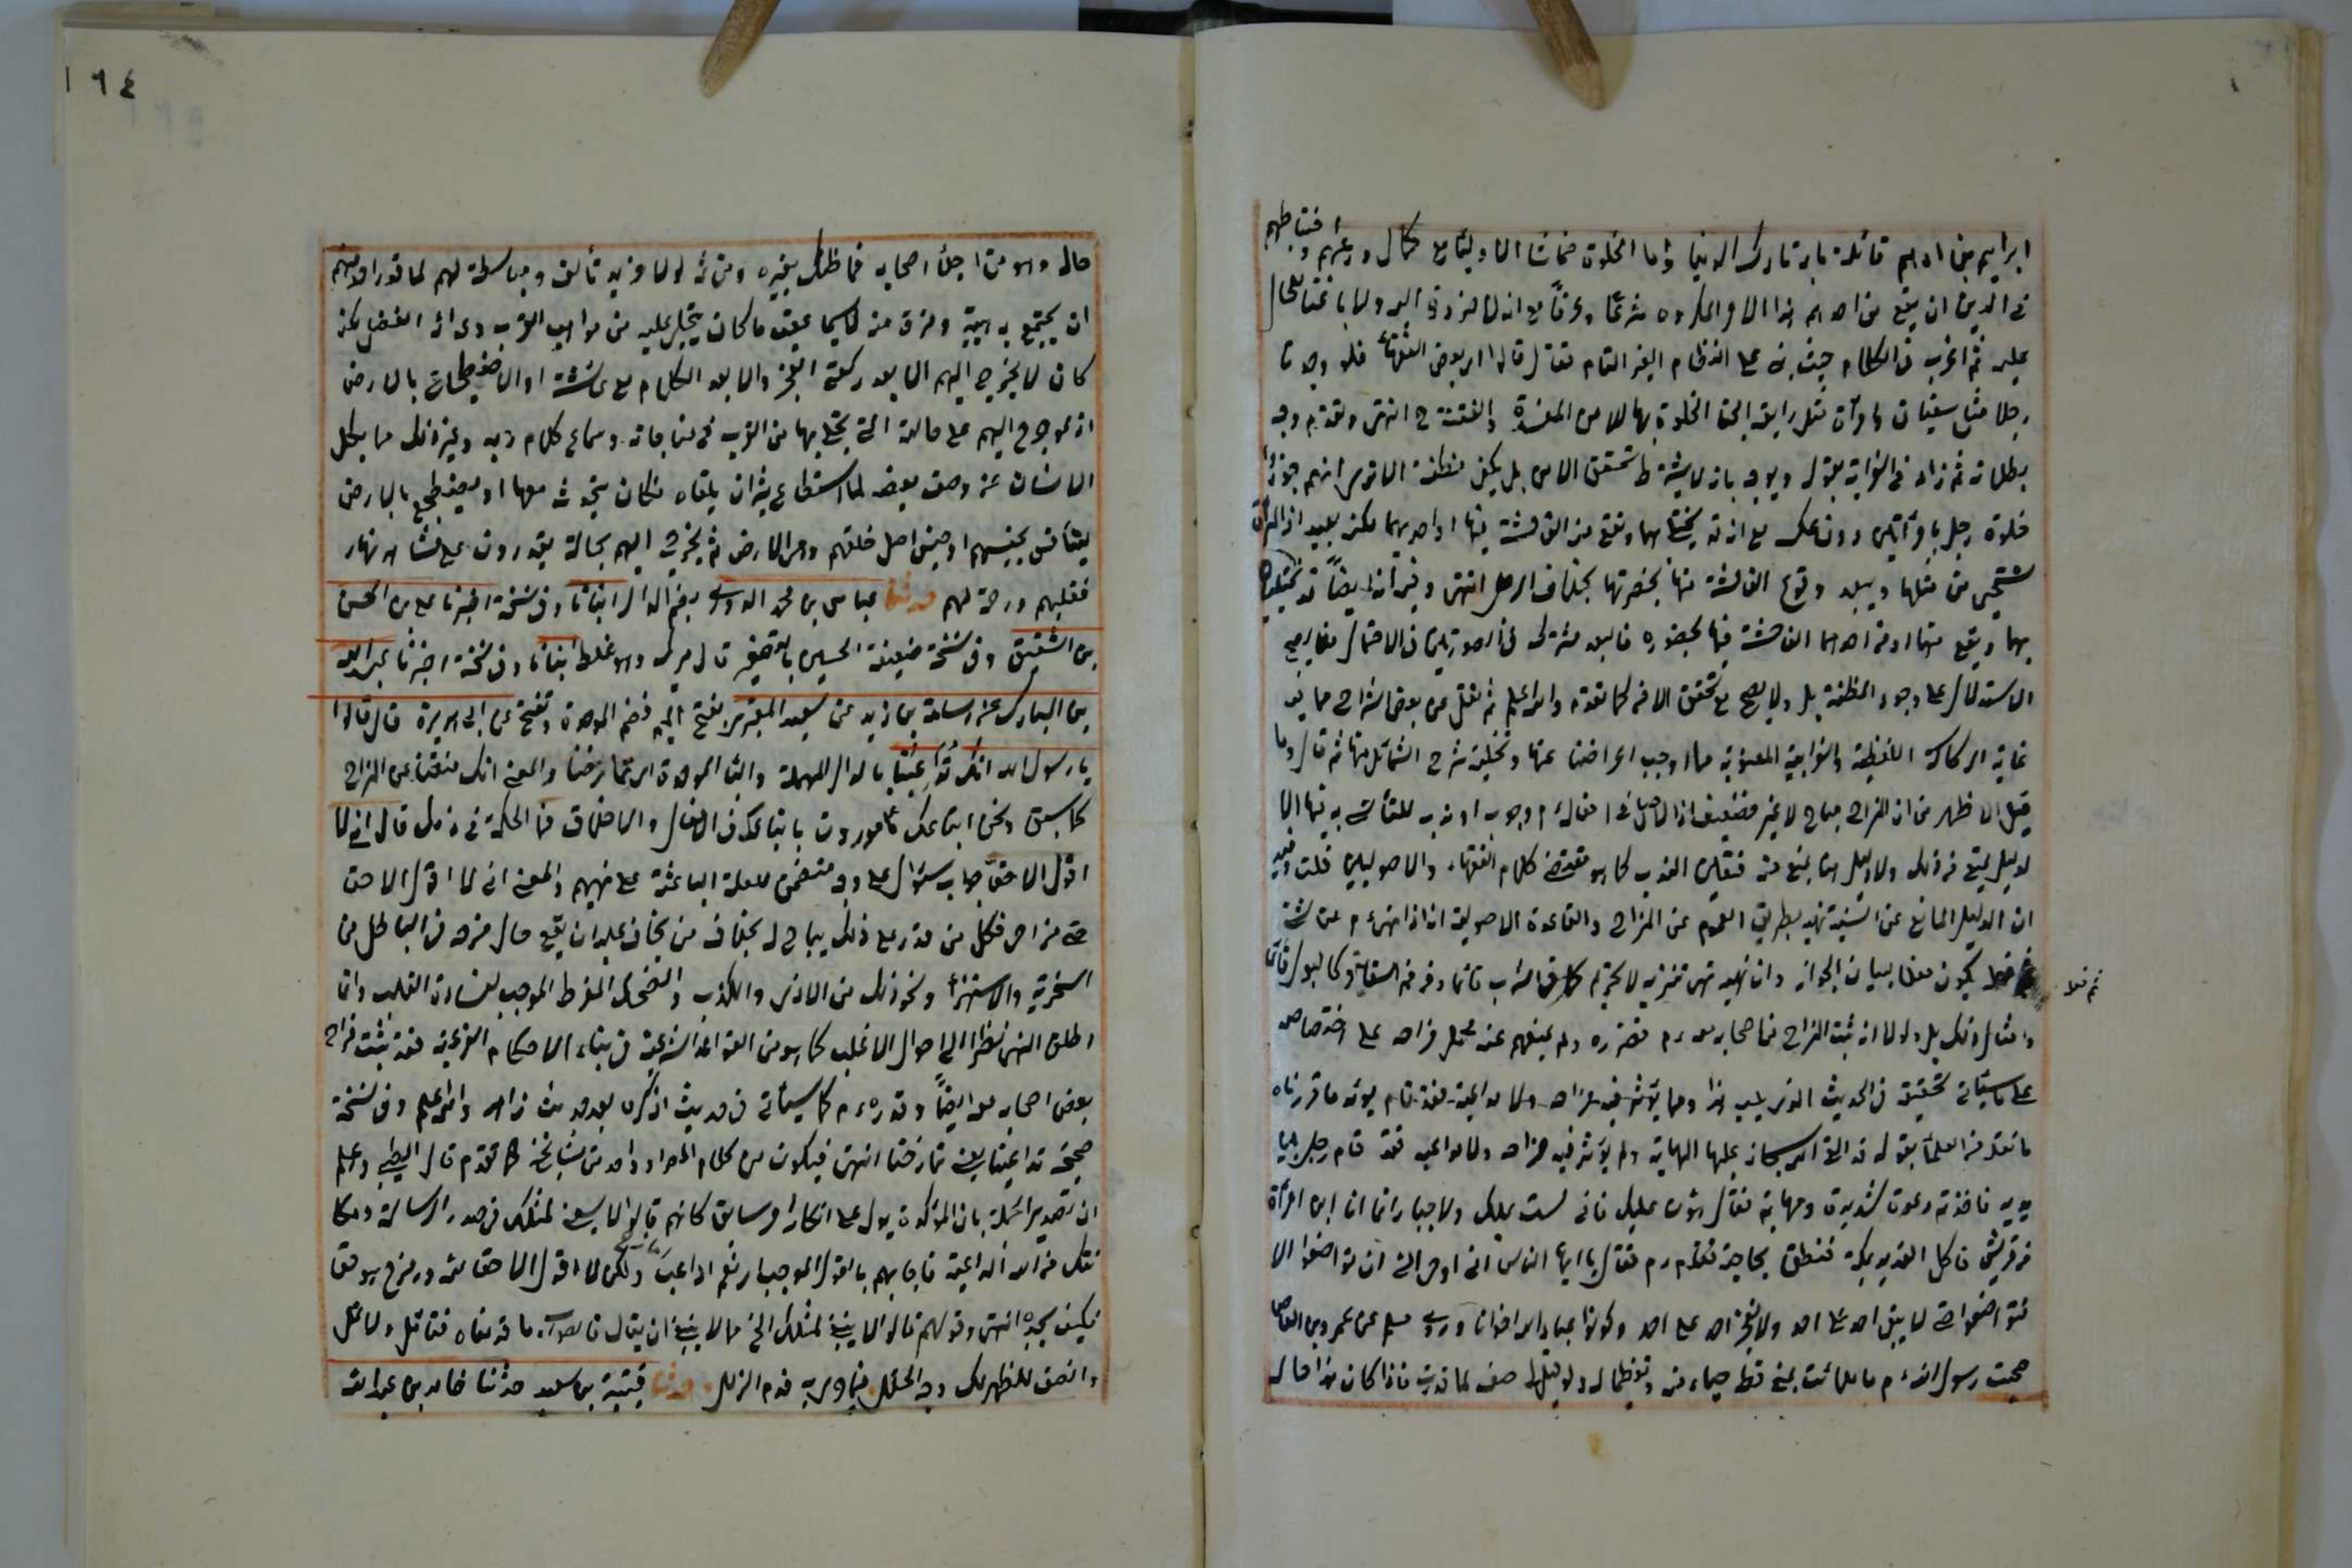 ابراهيم بن ادهم قائلة بانه تارك الدنيا واما الخلوة
في الدين ان يقع من احدهم هذا الامر المكروه شرعا وعرفا مع انه
عليه ثم اغرب في الكلام حيث بنى على النظام الغير التام فقال قالوا اي بعض الفقهاء فلو وجدنا
رجلا مثل سفيان وامرأة مثل رابعة ابحنا الخلوة بها للامن المفسدة والفتنة انتهى وتقدم وجه
بطلانه ثم زاد في الغرابة بقوله ويوجه بانه لا يشترط تحقق الامن بل يكفي مظنته الا ترى انهم جوزوا
خلوة رجل بامرأتين دون عكسه مع انه قد يختلي بهما ويقع منه الفاحشة فيهما او احديهما لكنه بعيد اذ المرأة
تستحيي من مثلها ويبعد وقوع الفاحشة منها بحضرتها بخلاف الرجل انتهى وفيه انه ايضا قد
بهما ويقع منهما او من احدهما الفاحشة فيها بحضوره
الاستدلال على وجود المظنة بل ولا يصح مع تحقق الامن كما تقدم والله اعلم ثم نقل عن بعض شراح ما فيه
غاية الركاكة اللفظية والغرابة المعنوية مما اوجب اعراضنا عنها وتخلية شرح الشمائل منها ثم قال وما
قيل الاظهر من ان المزاح مباح لا غير فضعيف اذ الاصل في افعاله م وجوب او ندب للتأسي به فيها الا
لدليل يمنع من ذلك ولا دليل هنا يمنع منه فتعين الندب كما هو مقتضى كلام الفقهاء والاصوليين قلت
ان الدليل المانع عن السنية نهيه بطريق العموم عن المزاح والقاعدة الاصولية انه اذا نهى م عن شئ
ثم فعل
يكون فعله لبيان الجواز وان نهيه نهي تنزيه لا تحريم كما في الشرب قائما ومن فم السقاء وكالبول قائما
وامثال ذلك بل ولولا انه ثبت المزاح من اصحابه معه م فقرره ولم يمنعهم عنه لحمل مزاحه على اختصاصه
على ما سيأتي تحقيقه في الحديث الذي يلي هذا ومما يؤثر فيه مزاحه ولا مداعبته فقد قام يؤيد ما قررناه
ما نقله من العلماء بقوله قد القى الله سبحانه عليها المهابة ولم يؤثر فيه مزاحه ولا مداعبه فقد قام رجل بين
يديه فاخذته رعدة شديدة ومهابة فقال هون عليك فاني لست بملك ولا جبار انما انا ابن امرأة
من قريش تأكل القديد بمكة فنطق بحاجته فقام م فقال يا ايها الناس اني اوحي الي ان تواضعوا الا
فتواضعوا حتى لا يبغي احد على احد ولا يفخر احد على احد وكونوا عباد الله اخوانا وروى مسلم عن عمرو بن العاص
صحبت رسول الله م ما ملأت عيني قط حياء منه وتعظيما له ولو قيل لي صفه لما قدرت فاذا كان هذا حاله
١٦٤
حاله وهو من اجل اصحابه فما ظنك بغيره ومن ثم لولا مزيد تألفه ومباسطته لهم لما قدر احد منهم
ان يجتمع به هيبة وفرقا منه لا سيما عقب ما كان يتجلى عليه من مواهب القرب وعوائد الفضل لكنه
كان لا يخرج اليهم الا بعد ركعتي الفجر والا بعد الكلام مع عائشة او الاضطجاع بالارض
اذ لو خرج اليهم على حالته التي تجلى بها من القرب في مناجاته وسماع كلام ربه وغير ذلك مما يكل
اللسان عن وصف بعضه لما استطاع بشر ان يلقاه فكان يتحدث معها او يضطجع بالارض
ليتأنس بجنسهم او جنس اصل خلقهم وهي الارض ثم يخرج اليهم بحالة يقدرون على
ورحمة لهم حدثنا عباس بن محمد الدوري بضم الدال انبأنا وفي نسخة اخبرنا علي بن الحسن
بن الشقيق وفي نسخة ضعيفة الحسين بالتصغير قال ميرك وهو غلط انبأنا وفي نسخة اخبرنا عبد الله
بن المبارك عن اسامة بن زيد عن سعيد المقبري بفتح الميم وضم الموحدة وتفتح عن ابي هريرة قال قالوا
يا رسول الله انك تداعبنا بالدال المهملة والباء الموحدة اي تمازحنا والمعنى انك منعتنا عن المزاح
كما سبق ونحن اتباعك مأمورون باتباعك في الافعال والاخلاق فما الحكمة في ذلك قال اني لا
اقول الا حقا جواب سؤال على وجه متضمن للعلة الباعثة على نهيهم والمعنى اني لا اقول الا حقا
حتى في مزاحي فكل من قدر على ذلك يباح له بخلاف من يخاف عليه ان يقع حال مزحه في الباطل من
السخرية والاستهزاء ونحو ذلك من الاذى والكذب والضحك المفرط الموجب لقساوة القلب وانما
اطلق النهي نظرا الى احوال الاغلب كما هو من القواعد الشرعية في بناء الاحكام الفرعية فقد ثبت مزاح
بعض اصحابه معه ايضا وقدره م كما سيأتي في حديث اذكره بعد حديث زاهر والله اعلم وفي نسخة
صحيحة تداعبنا يعني تمازحنا انتهى فيكون من كلام المص او واحد من مشايخه كما تقدم قال الطيبي واعلم
ان تصدير الجملة بان المؤكدة يدل على انكار امر سابق كانهم قالوا لا ينبغي لمثلك في صدر الرسالة ومكانتك
من الله المداعبة فاجابهم بالقول الموجب اي نعم اداعب ولكن لا اقول الا حقا
انتهى وقولهم قالوا لا ينبغي لمثلك الخ مما لا ينبغي ان يقال فالصواب ما قدمناه فتأمل ولا تمل
وانصف ليظهر لك وجه الخلل حدثنا قتيبة بن سعيد حدثنا خالد بن عبد الله